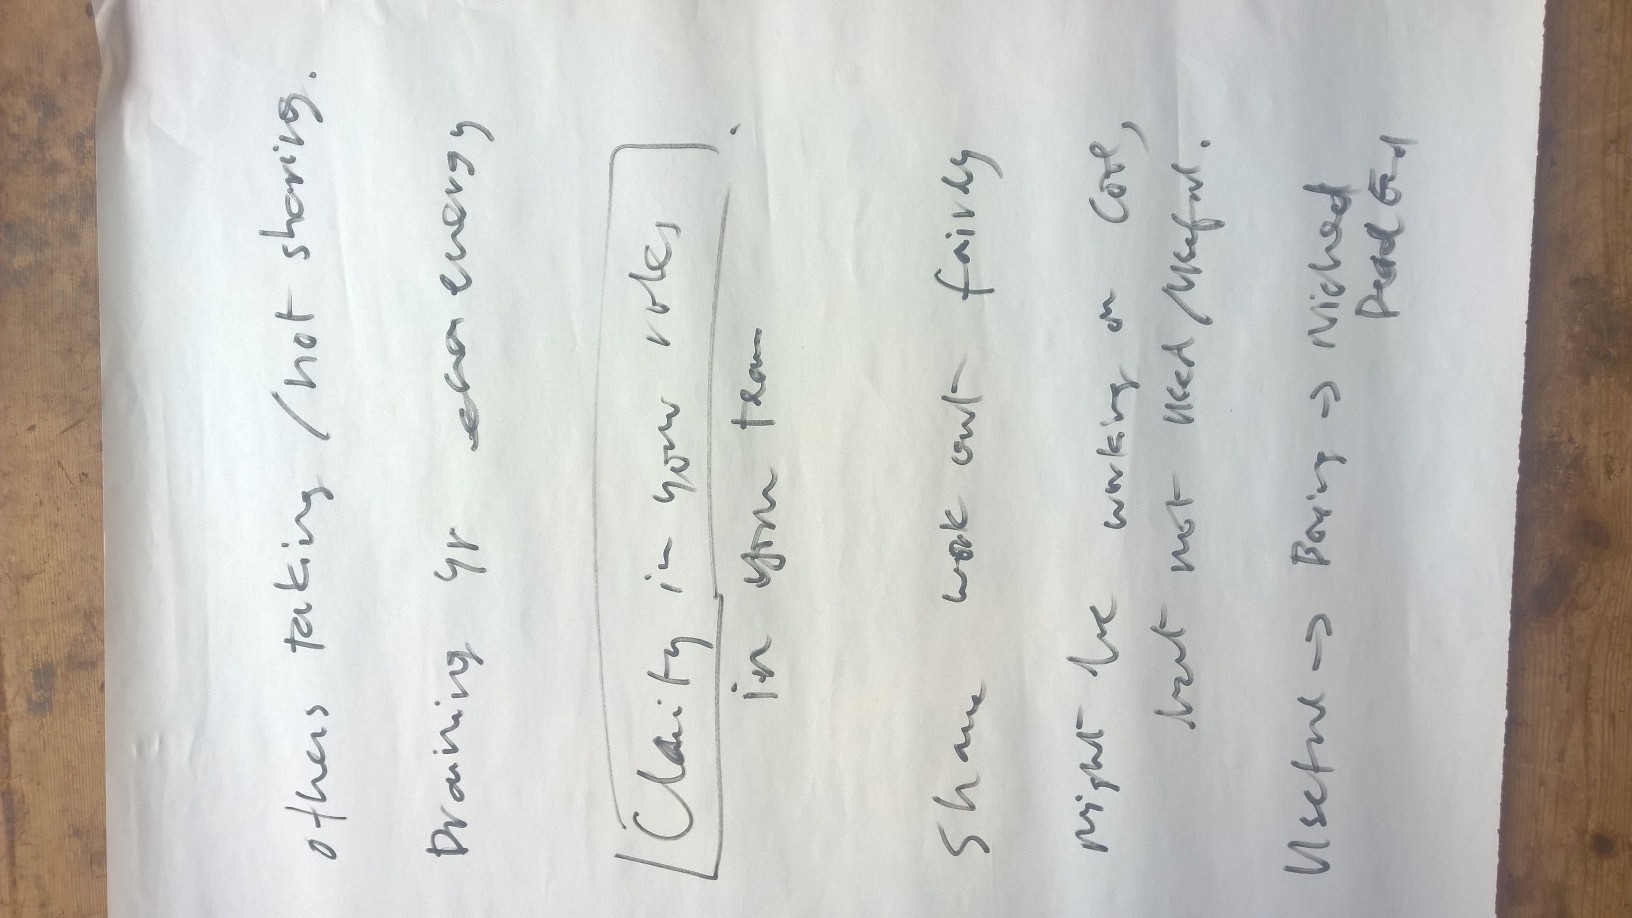 others taking / not sharing.
Draining yr energy
Clarity in your roles
in your team
Share work out fairly
Might be working on cool,
but not used / useful.
Useful → Boring → Niched
Dead End